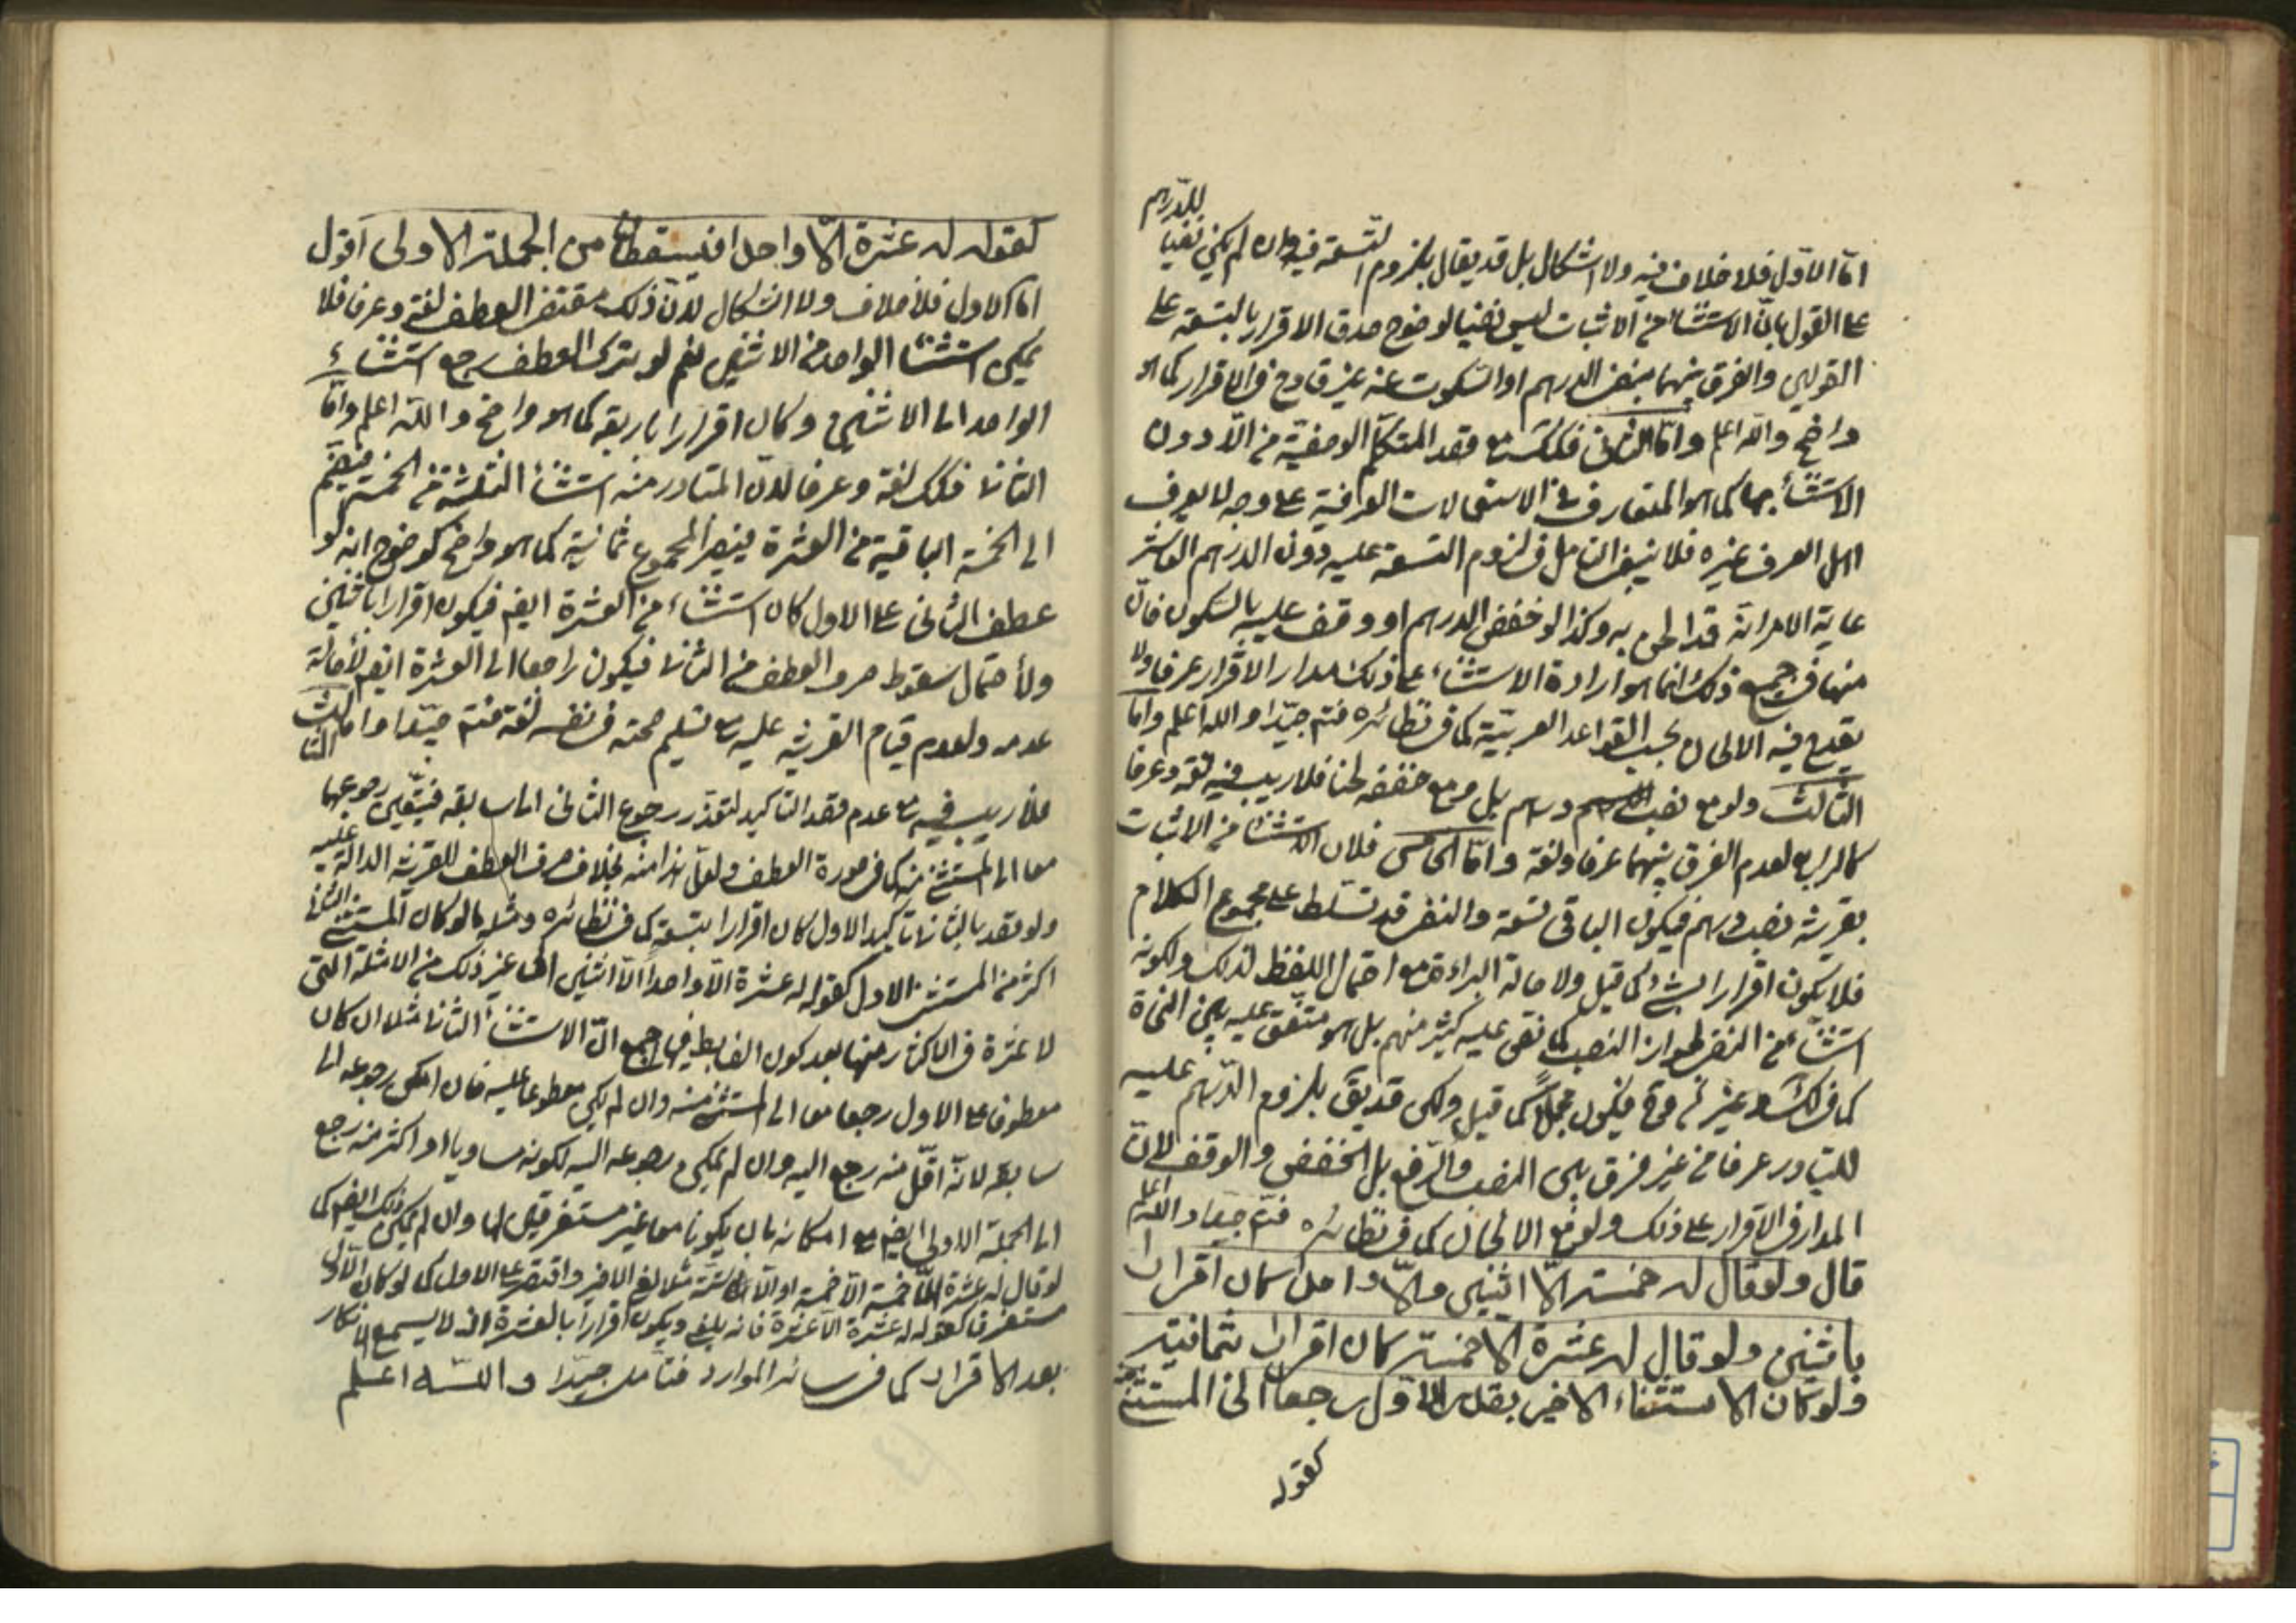 اما الاول فلا خلاف فيه ولا اشكال بل قد يقال بلزوم التسعة فيه وان لم يكن نفيا للدرهم
على القول بان الاستثناء من الاثبات ليس نفيا لوضوح صدق الاقرار بالتسعة على
القولين والفرق بينهما بنفى الدرهم او السكوت عنه غير قادح فى الاقرار كما هو
واضح والله اعلم واما الثانى فكك مع قصد المتكلم الوصفية من الا دون
الاستثناء بها كما هو المتعارف فى الاستعمالات العرفية على وجه لا يعرف
اهل العرف غيره فلا ينبغى التامل فى لزوم التسعة عليه دون الدرهم العاشر
غاية الامر انه قد لحن به وكذا لو خفض الدرهم او وقف عليه بالسكون فان
منها فى جميع ذلك انما هو ارادة الاستثناء على ذلك مدار الاقرار عرفا ولا
يقدح فيه الالحان بحسب القواعد العربية كما فى نظائره فتم جيدا والله اعلم واما
الثالث ولو مع نصب درهم بل مع خفضه لحنا فلا ريب فيه لغة وعرفا
كالرابع لعدم الفرق بينهما عرفا ولغة واما الخامس فلان الاستثناء من الاثبات
بقرينة نصب درهم فيكون الباقى تسعة والنفى قد تسلط على مجموع الكلام
فلا يكون اقرارا بشىء كما قيل ولاصالة البراءة مع احتمال اللفظ لذلك ولكونه
استثناء من النفى لجواز النصب كما نص عليه كثير منهم بل هو متفق عليه بين النحاة
كما فى لك وغيره فيكون مجملا كما قيل ولكن قد يق بلزوم الدرهم عليه
للتبادر عرفا من غير فرق بين النصب والرفع بل الخفض والوقف لان
المدار فى الاقرار على ذلك ولو مع الالحان كما فى نظائره فتم جيدا والله اعلم
قال ولو قال له خمسة الا اثنين والا واحدا كان اقرارا
باثنين ولو قال له عشرة الا خمسة كان اقرارا بثمانية
ولو كان الاستثناء الاخير بقدر الاول رجعا الى المستثنى منه
كقوله
كقوله له عشرة الا واحدا فيسقطان من الجملة الاولى اقول
اما الاول فلا خلاف ولا اشكال لان ذلك مقتضى العطف لغة وعرفا فلا
يمكن استثناء الواحد من الاثنين نعم لو ترك العطف رجع استثناء
الواحد الى الاثنين وكان اقرارا باربعة كما هو واضح والله اعلم واما
الثانى فكك لغة وعرفا لان المتبادر منه استثناء الثلثة من الخمسة فيضم
الى الخمسة الباقية من العشرة فيصير المجموع ثمانية كما هو واضح كوضوح انه لو
عطف الثانى على الاول كان استثناء من العشرة ايضم فيكون اقرارا باثنين
ولاحتمال سقوط حرف العطف من الثانى فيكون راجعا الى العشرة ايضم لاصالة
عدمه ولعدم قيام القرينة عليه مع تسليم صحته فى نفسه لغة فتم جيدا واما الثالث
فلا ريب فيه مع عدم قصد التاكيد لتعذر رجوع الثانى الى سابقه فيتعين رجوعهما
معا الى المستثنى منه كما فى صورة العطف ولعل هذا منه بخلاف حرف العطف للقرينة الدالة عليه
ولو قصد بالثانى تاكيد الاول كان اقرارا بتسعة كما فى نظائره ومثله ما لو كان المستثنى الثانى
اكثر من المستثنى الاول كقوله له عشرة الا واحدا الا اثنين الى غير ذلك من الامثلة التى
لا ثمرة فى الاكثار منها بعد كون الضابط فى الجميع ان الاستثناء الثانى مثلا ان كان
معطوفا على الاول رجعا معا الى المستثنى منه وان لم يكن معطوفا عليه فان امكن رجوعه الى
سابقه لانه اقل منه رجع اليه وان لم يمكن رجوعه اليه لكونه مساويا او اكثر منه رجع
الى الجملة الاولى ايضم مع امكانه بان يكونا معا غير مستغرقين لها وان لم يمكن ذلك ايضم كما
لو قال له عشرة الا خمسة الا خمسة او الا ستة مثلا لغى الاخير واقتصر على الاول كما لو كان الاول
مستغرقا كقوله له عشرة الا عشرة فانه يلغى ويكون اقرارا بالعشرة اذ لا يسمع الانكار
بعد الاقرار كما فى سائر الموارد فتامل جيدا والله اعلم